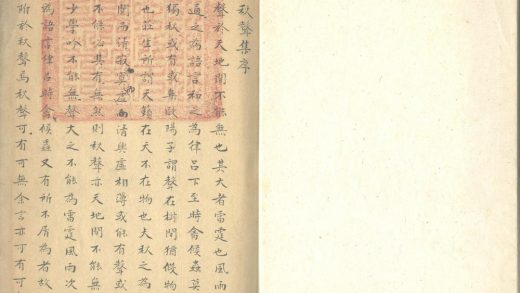 秋聲集序
聲於天地間不能無也其大者雷霆也風雨
之為語言和之為律呂下至時禽候蟲莫
獨秋或有或無歐陽子謂聲在樹間猶假物
也莊生所謂天籟在天不在物也夫秋之為
而清寂寞虛而清與虛相薄或能有聲或
不能必其有無然則秋聲亦天地間不能無
少學吟不能無聲大之不能為雷霆風雨次
為語言律呂時禽候蟲又有所不屑為者故
附於秋聲焉秋聲可有可無余言亦可有可